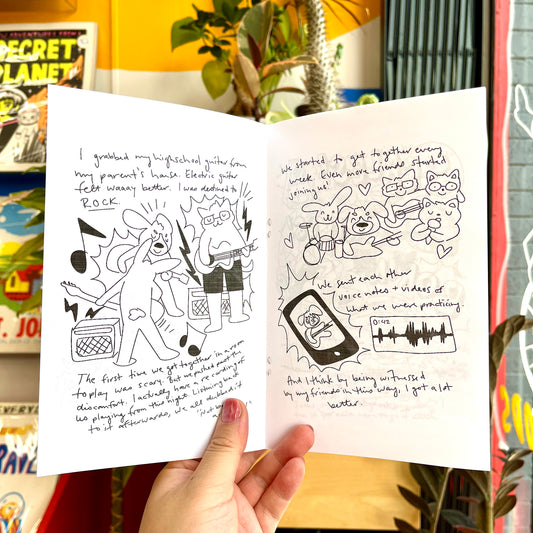 SECRET
PLANET
I grabbed my highschool guitar from
my parent's house. Electric guitar
felt waaay better. I was destined to
ROCK.
The first time we got together in a room
to play was scary. But we pushed past the
discomfort. I actually have a recording of
us playing from this night. Listening back
to it afterwards, we all dubbed it
"Not b
We started to get together every
week. Even more friends started
joining us!
We sent each other
voice notes + videos of
what we were practicing.
0:42
And I think by being witnessed
by my friends in this way, I got a lot
better.
T. JO
EVERY
RAVE